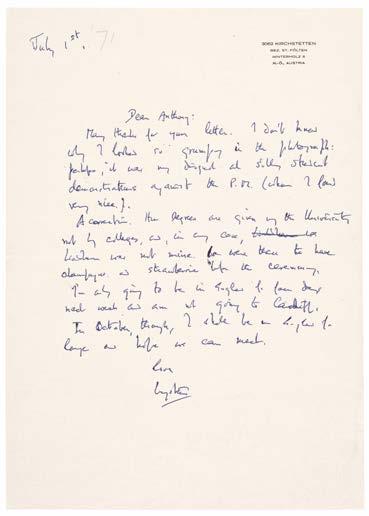 July 1st, '71
3062 KIRCHSTETTEN
BEZ. ST. PÖLTEN
HINTERHOLZ 6
N.-Ö., AUSTRIA
Dear Anthony:
Many thanks for your letter. I don't know
why I looked so grumpy in the photograph:
perhaps, it was my disgust at silly student
demonstrations against the P.M. (whom I found
very nice.).
A correction. Hon Degrees are given by the University
not by colleges, and, in any case,
was not mine. We were there to have
champagne and strawberries before the ceremony.
I'm only going to be in England for four days
next week and am not going to Cardiff.
In October, though, I shall be in England for
longer and hope we can meet.
love
Wystan